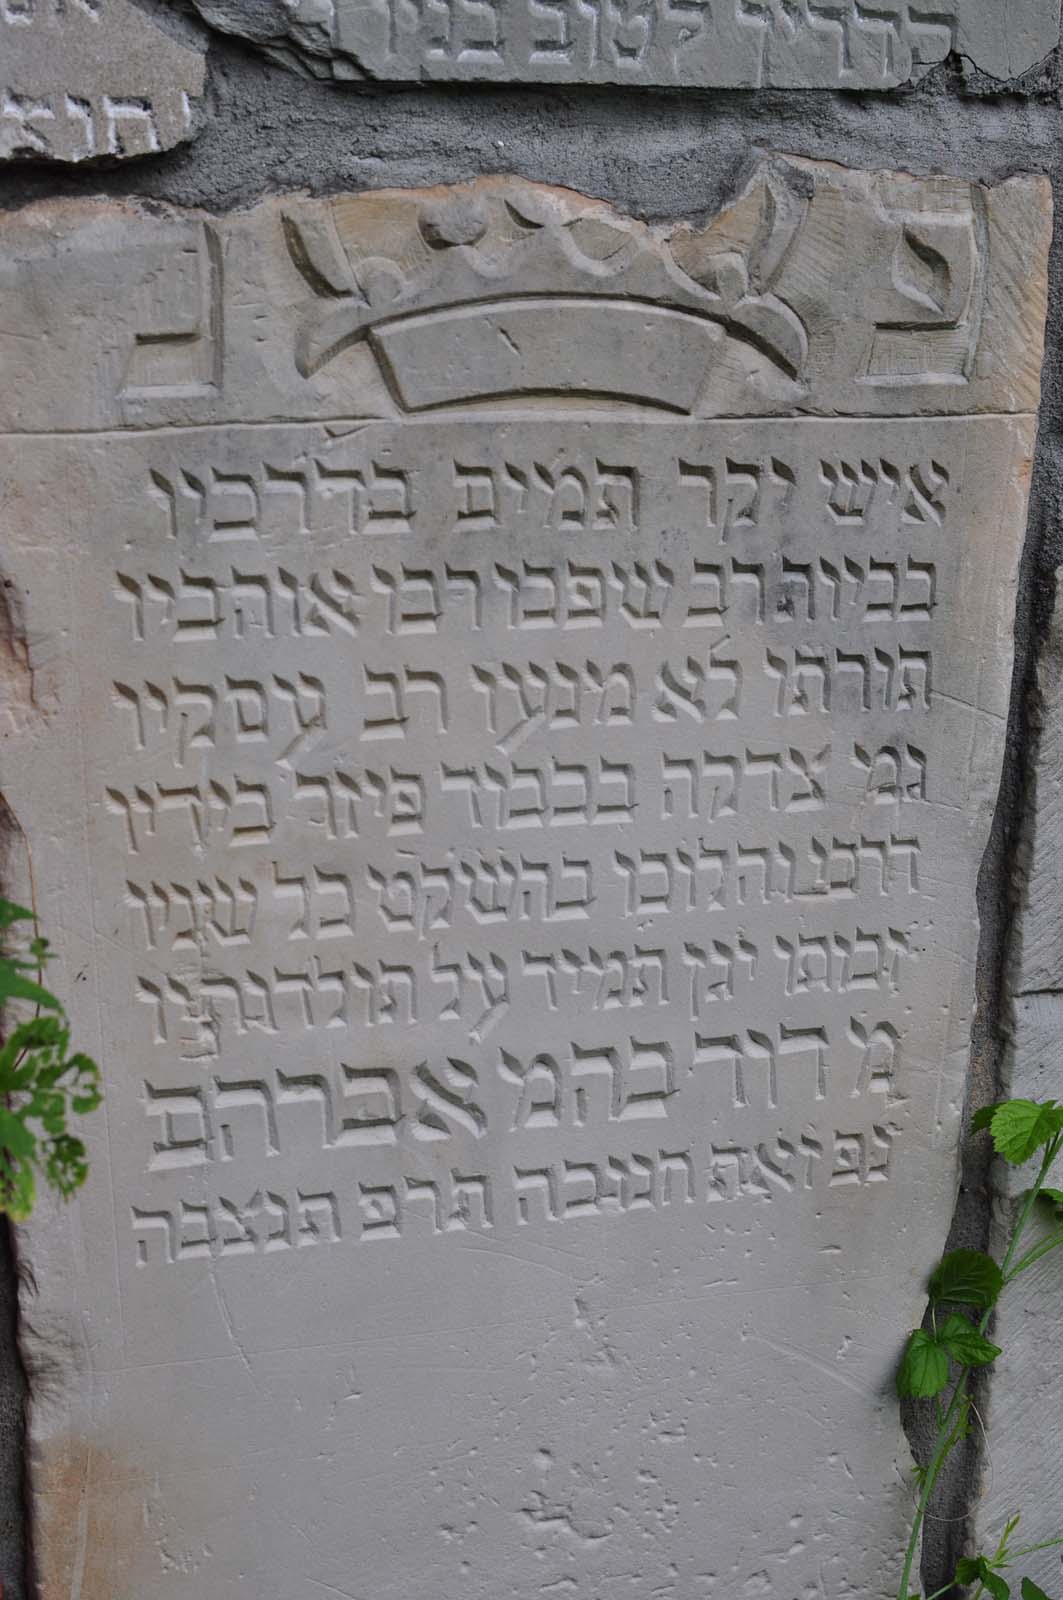 לטוב בניו
פ נ
איש יקר תמים בדרכיו
בכיות רב שפכו רבו אוהביו
תורתו לא מנעו רב עסקיו
גמ צדקה בכבוד פיזר בידיו
דרכו והלוכו בהשקט כל שניו
זכותו יגן תמיד על תולדותיו
מ דוד בהמ אברהם
נפ זאת חנוכה תרפ תנצבה